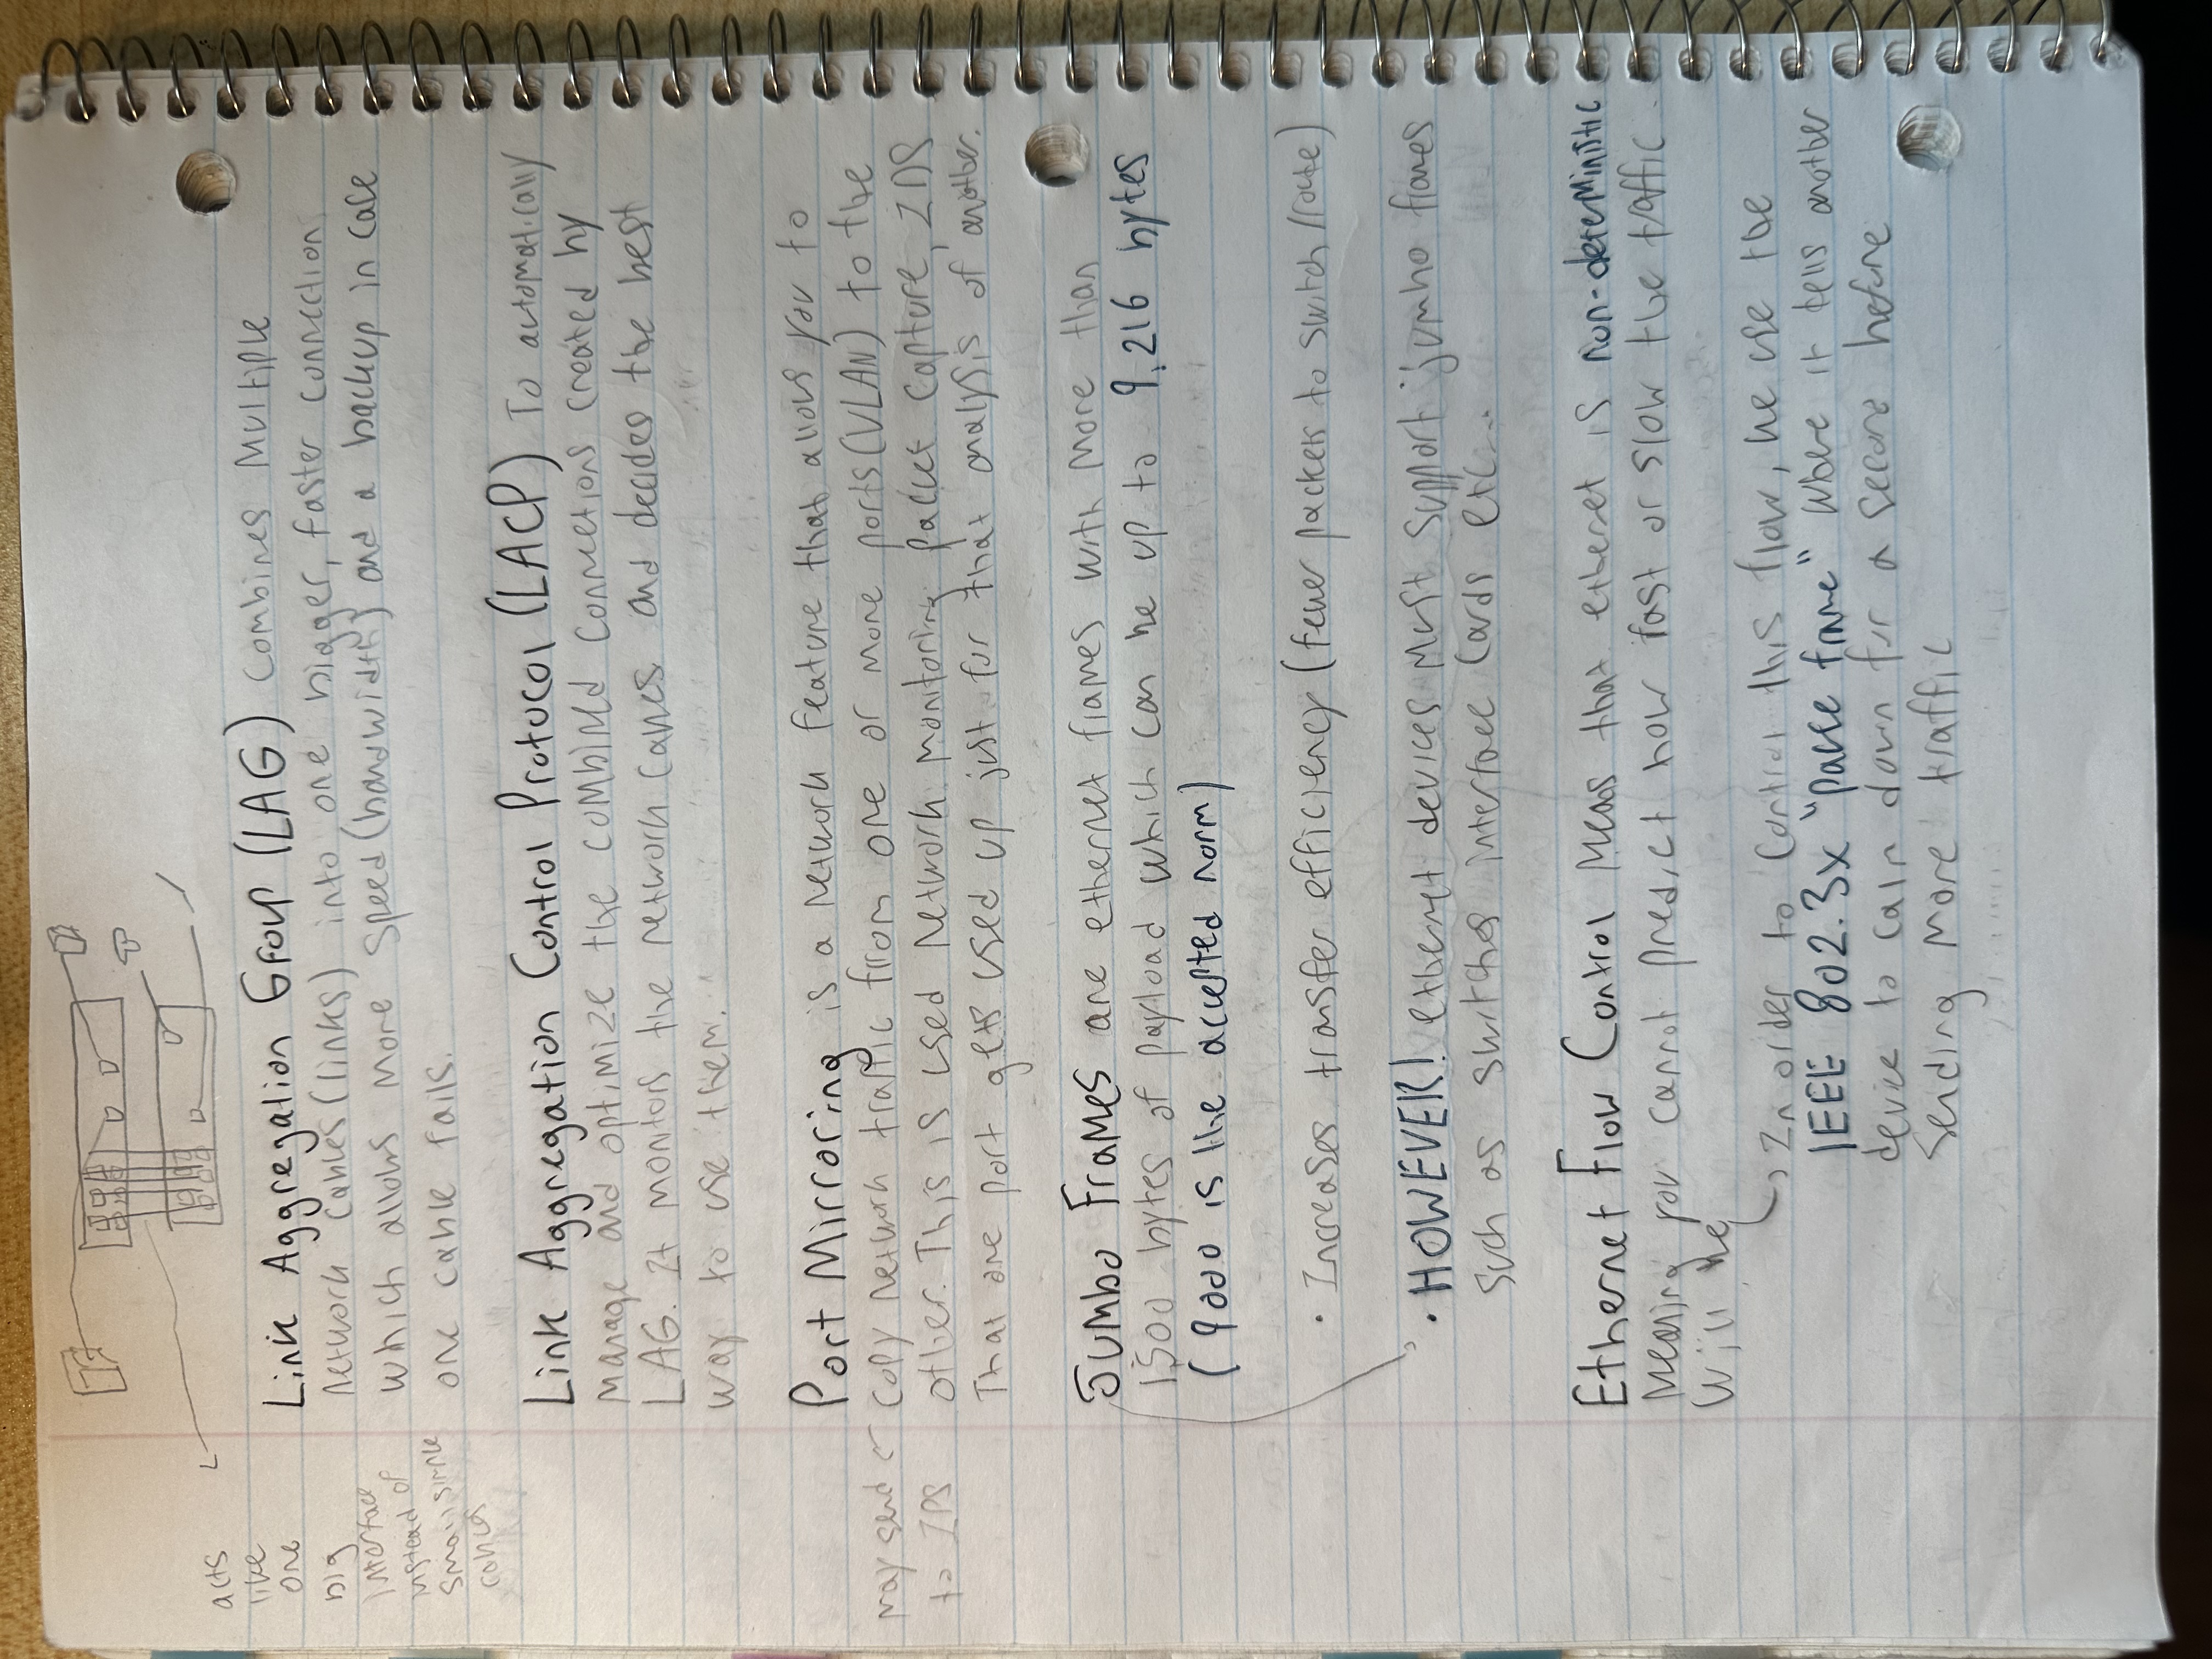 acts
like
one
big
interface
instead of
small simple
cables
Link Aggregation Group (LAG) combines multiple
network cables (links) into one bigger, faster connection
which allows more speed (bandwidth) and a backup in case
one cable fails.
Link Aggregation Control Protocol (LACP) To automatically
manage and optimize the combined connections created by
LAG. It monitors the network cables and decides the best
way to use them.
Port Mirroring is a network feature that allows you to
copy network traffic from one or more ports (VLAN) to the
other. This is used network monitoring packet capture, IDS
That one port gets used up just for that analysis of another.
may send
to IPS
Jumbo Frames are ethernet frames with more than
1,500 bytes of payload which can be up to 9,216 bytes
(9000 is the accepted norm)
· Increases transfer efficiency (fewer packets to switch/route)
· HOWEVER! ethernet devices must support jumbo frames
such as switches interface cards etc...
Ethernet Flow Control means that ethernet is non-deterministic
meaning you cannot predict how fast or slow the traffic
will be
In order to control this flow, we use the
IEEE 802.3x "pause frame" where it tells another
device to calm down for a second before
sending more traffic